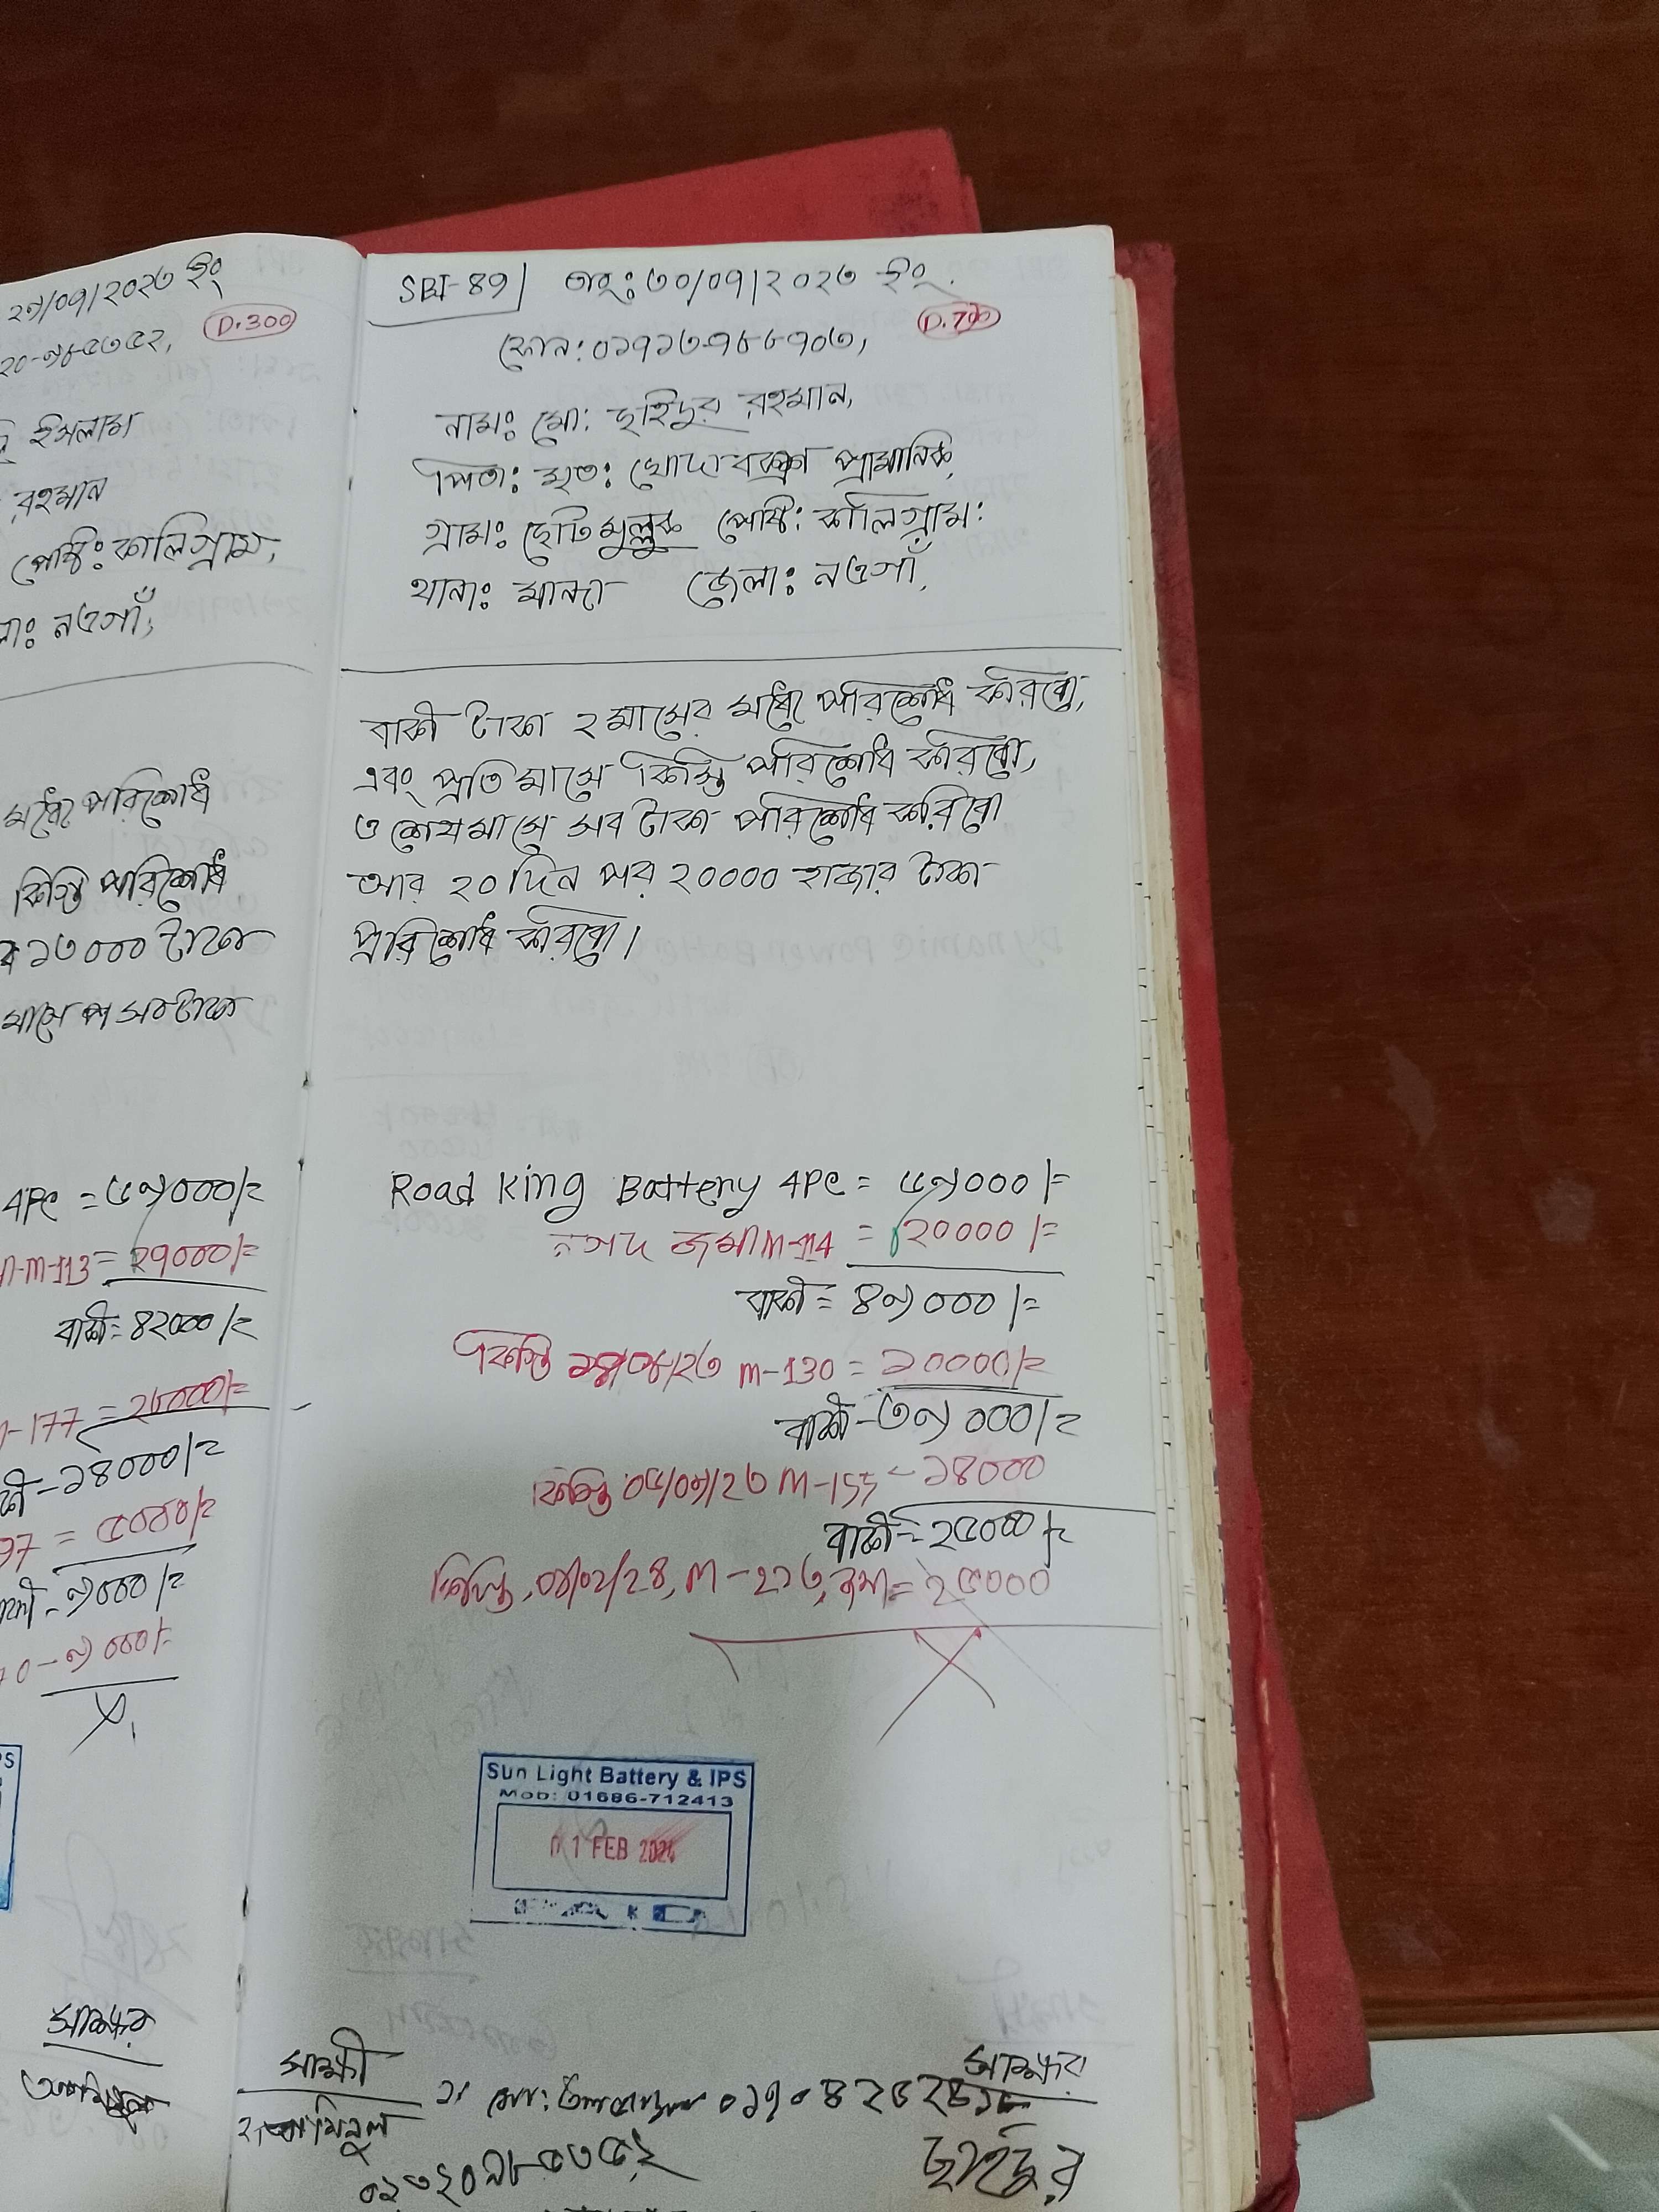 ২৯/০৭/২০২৩ ইং
D.300
২০-৯৮৫৩৫২,
ইসলাম
রহমান
পোষ্ট: কালিগ্রাম,
নওগাঁ,
মধ্যে পরিশোধ
কিস্তি পরিশোধ
১৩০০০ টাকা
মাসে সব টাকা
4Pc = ৫৯০০০/=
M-113 = ২৭০০০/=
বাকী = ৪২০০০/=
-177 = ২৮০০০/=
- ১৪০০০/=
97 = ৫০০০/=
৯০০০/=
- ৯০০০/=
স্বাক্ষর
SBI-89
তাং: ৩০/০৭/২০২৩ ইং
D.700
ফোন: ০১৭১৩-৭৮৮৭০৩,
নাম: মো: ছহিদুর রহমান,
পিতা: মৃত: খোদা বকশ প্রামানিক,
গ্রাম: ছোট মুল্লুক পোষ্ট: কালিগ্রাম:
থানা: মান্দা জেলা: নওগাঁ,
বাকী টাকা ২ মাসের মধ্যে পরিশোধ করিবো,
এবং প্রতি মাসে কিস্তি পরিশোধ করিবো,
ও শেষ মাসে সব টাকা পরিশোধ করিবো
আর ২০ দিন পর ২০০০০ হাজার টাকা
পরিশোধ করিবো।
Road King Battery 4Pc = ৫৯০০০/=
নগদ জমা M-114 = ২০০০০/=
বাকী = ৪৯০০০/=
কিস্তি ০৮/২৩ M-130 = ১০০০০/=
বাকী - ৩৯০০০/=
কিস্তি ০৫/০৯/২৩ M-155 - ১৪০০০
বাকী = ২৫০০০/=
কিস্তি, ০১/০২/২৪, M-২১৩, জমা = ২৫০০০
Sun Light Battery & IPS
Mob: 01686-712413
01 FEB 2024
স্বাক্ষী
স্বাক্ষর
২। মো:
০১৩২০৯৮৫৩৫২
ছহিদুর